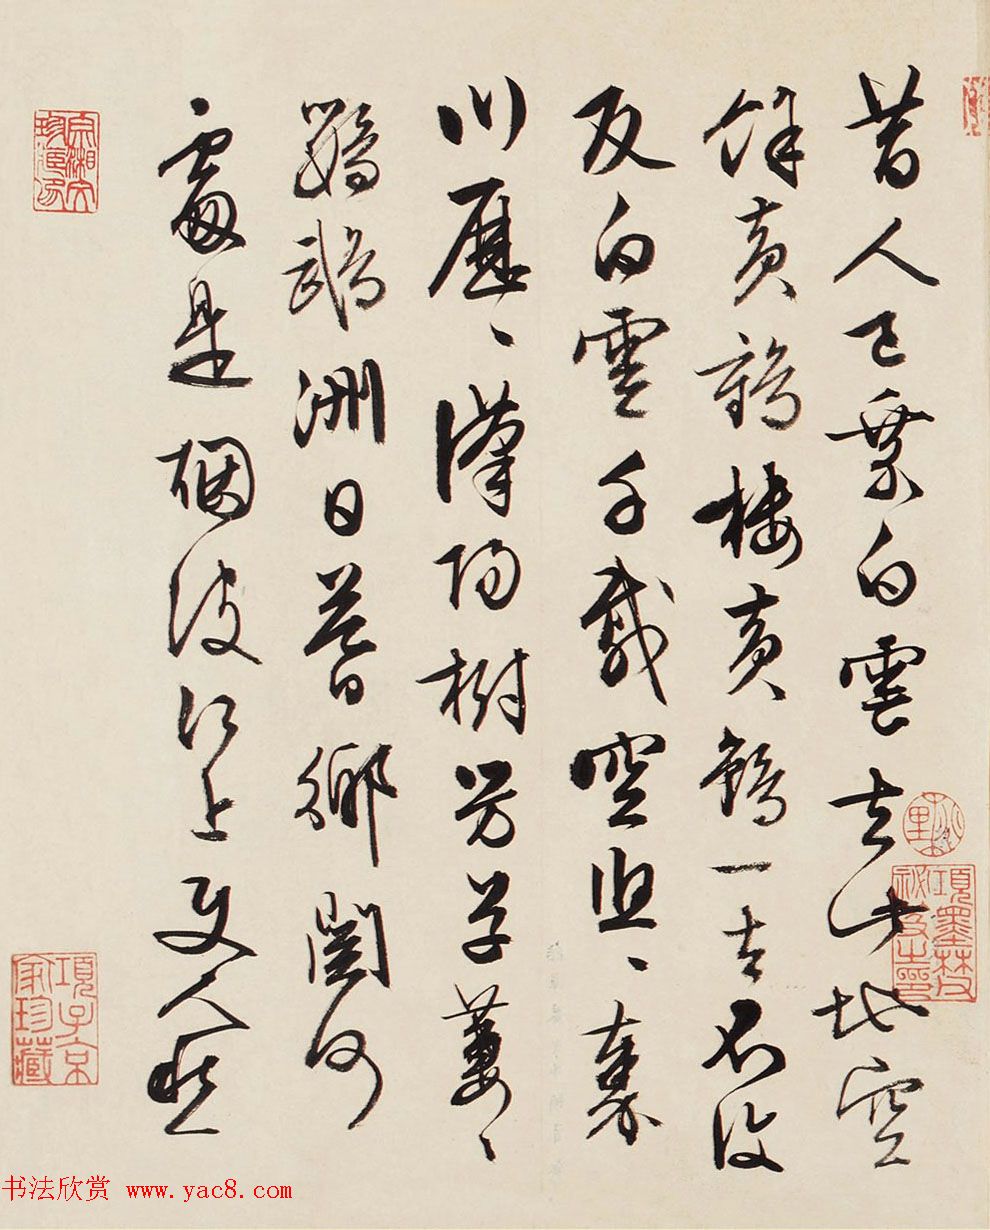 昔人已乘白雲去此地空
餘黃鶴樓黃鶴一去不復
反白雲千載空悠〻秦
川歷〻漢陽樹芳草萋〻
鸚鵡洲日暮鄉關何
處是烟波江上使人愁
項墨林父
秘笈之印
項子京
家珍藏
书法欣赏 www.yac8.com